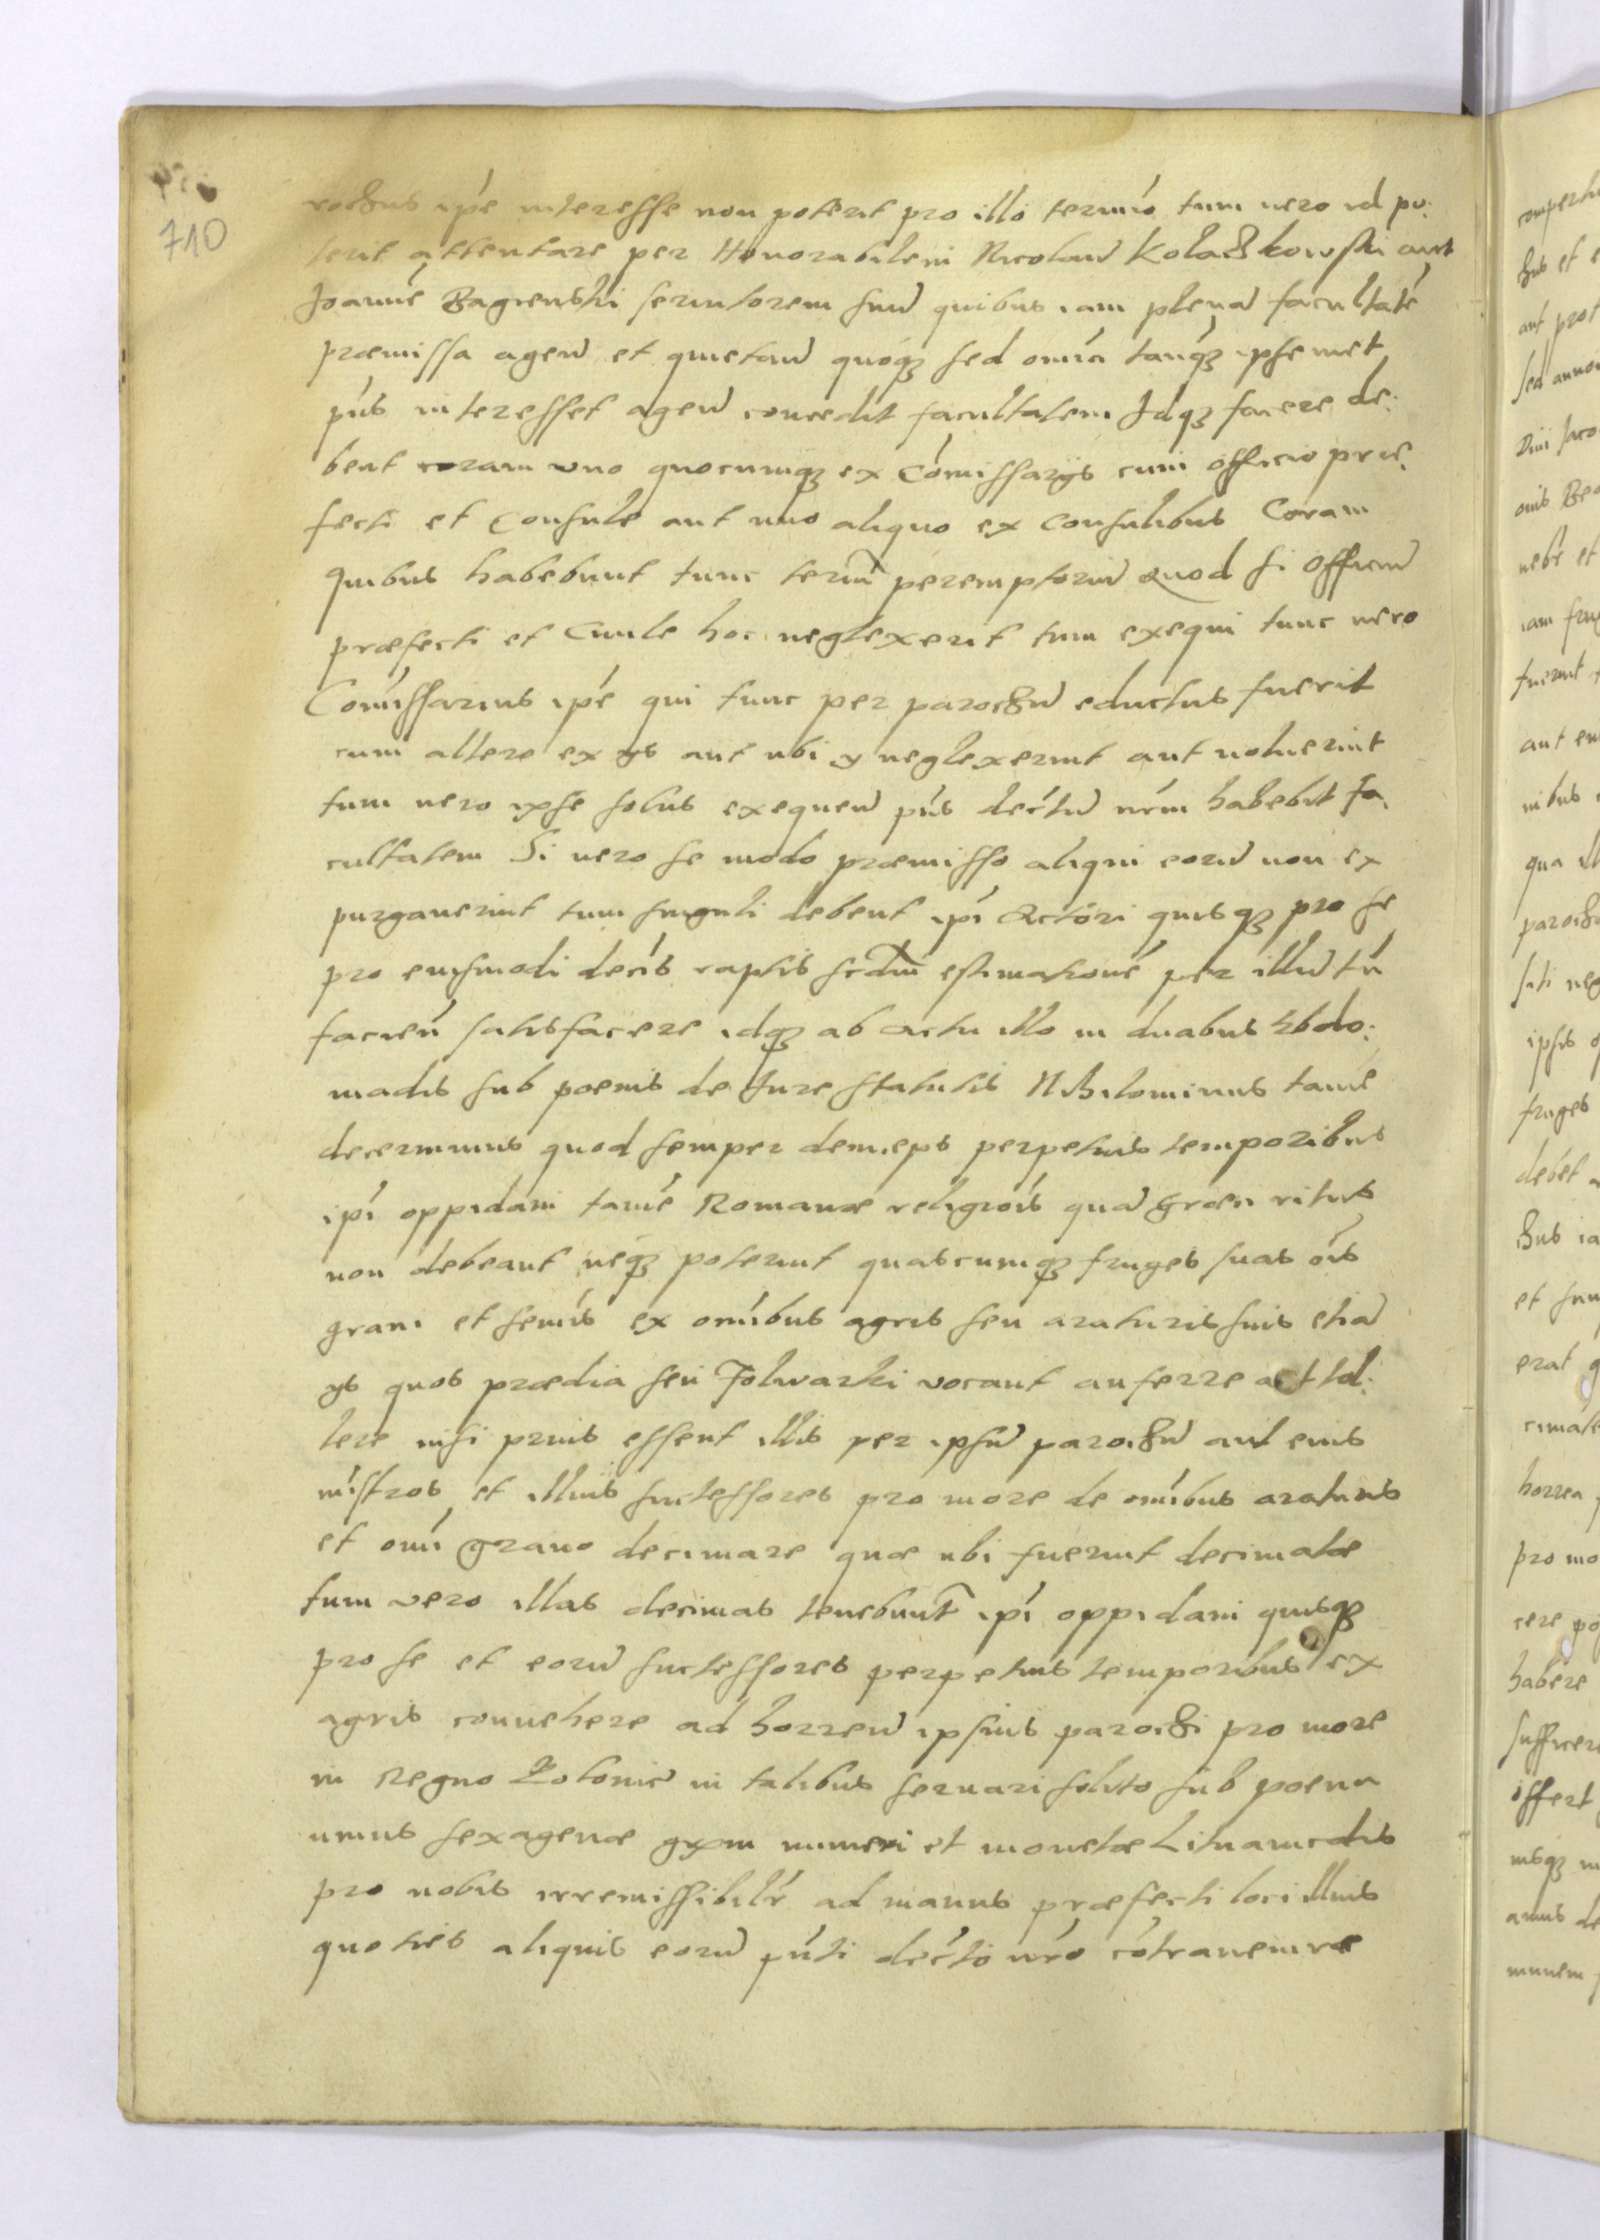 710
rochus ipse interesse non poterit pro illo termio tum uero id po:
terit attentare per Honorabilem Nicolau Kolaczkowski aut
Joanne Bagienski seruitorem suu quibus iam plena facultate
præmissa agen et quietan quoqz sed omia tanqz ipsemet
pns interesset agen concedit facultatem Idqz facere de:
bent coram vno quocumqz ex Comissarijs cum officio præ:
fecti et Consule aut uno aliquo ex Consulibus Coram
quibus habebunt tunc termi peremptoriu Quod si Officiu
præfecti et Ciuile hoc neglexerit tum exequi tunc uero
Comissarius ipe qui tunc per parochu eductus fuerit
cum altero ex ijs aut ubi ij neglexerint aut noluerint
tum uero ipse solus exequen pns decretu nrm habebit fa:
cultatem Si uero se modo præmisso aliqui eoru non ex
purgauerint tum singuli debent ipi Actori quisqz pro se
pro eiusmodi decis raptis scdm estimatione per illu tn
facien satisfacere idqz ab actu illo in duabus hebdo:
madis sub poenis de Jure statutis Nihilominus tame
decernimus quod semper deinceps perpetuis temporibus
ipi oppidani tame Romanæ religiois qua Græci ritus
non debeant neqz poterint quascumqz fruges suas ois
grani et semis ex omibus agris seu araturis suis etia
ijs quos prædia seu Folwarki vocant auferre aut tol:
lere nisi prius essent illis per ipsu parochu aut eius
mistros et illius successores pro more de omibus araturis
et omi grano decimare quæ ubi fuerint decimatæ
tum vero illas decimas tenebunt ipi oppidani quisqz
pro se et eoru successores perpetuis temporibus ex
agris conuehere ad horreu ipsius parochi pro more
in Regno Poloniæ in talibus seruari solito sub poena
unius sexagenæ grm numeri et monetæ Lituanicalis
pro nobis irremissibilr ad manus præfecti loci illius
quoties aliquis eoru pnti decreto nro cotraueniræ